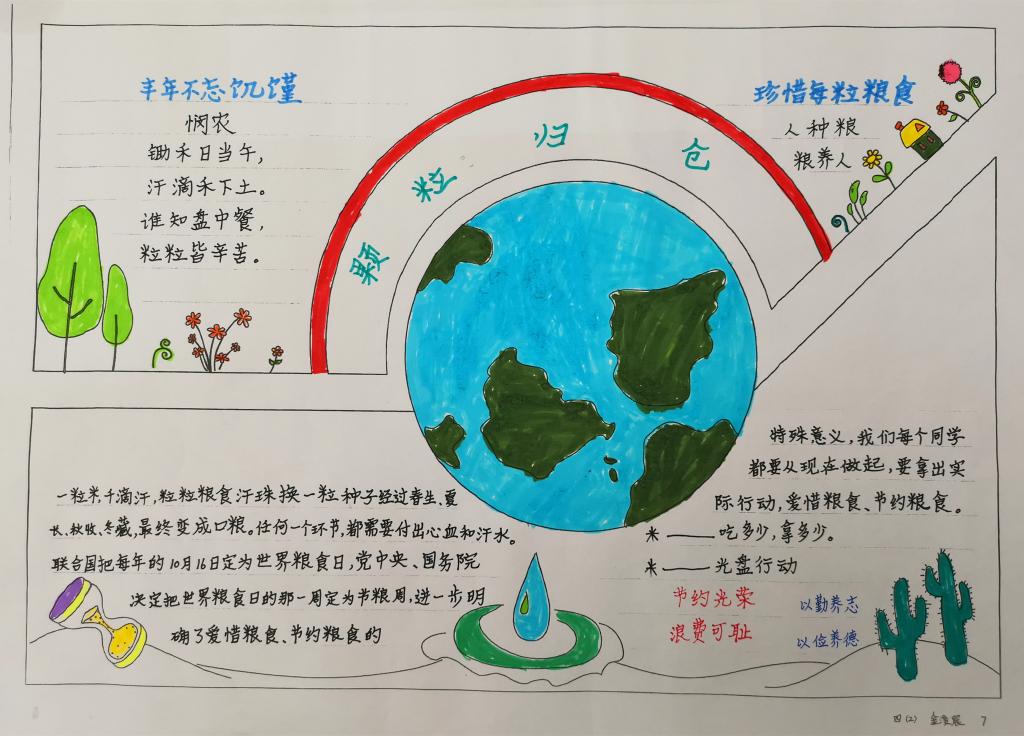 丰年不忘饥馑
悯农
锄禾日当午，
汗滴禾下土。
谁知盘中餐，
粒粒皆辛苦。
颗粒归仓
珍惜每粒粮食
人种粮
粮养人
一粒米千滴汗，粒粒粮食汗珠换一粒种子经过春生、夏
长、秋收、冬藏，最终变成口粮。任何一个环节，都需要付出心血和汗水。
联合国把每年的10月16日定为世界粮食日，党中央、国务院
决定把世界粮食日的那一周定为节粮周，进一步明
确了爱惜粮食、节约粮食的
特殊意义，我们每个同学
都要从现在做起，要拿出实
际行动，爱惜粮食、节约粮食。
米——吃多少，拿多少。
米——光盘行动
节约光荣
浪费可耻
以勤养志
以俭养德
四(2)
7